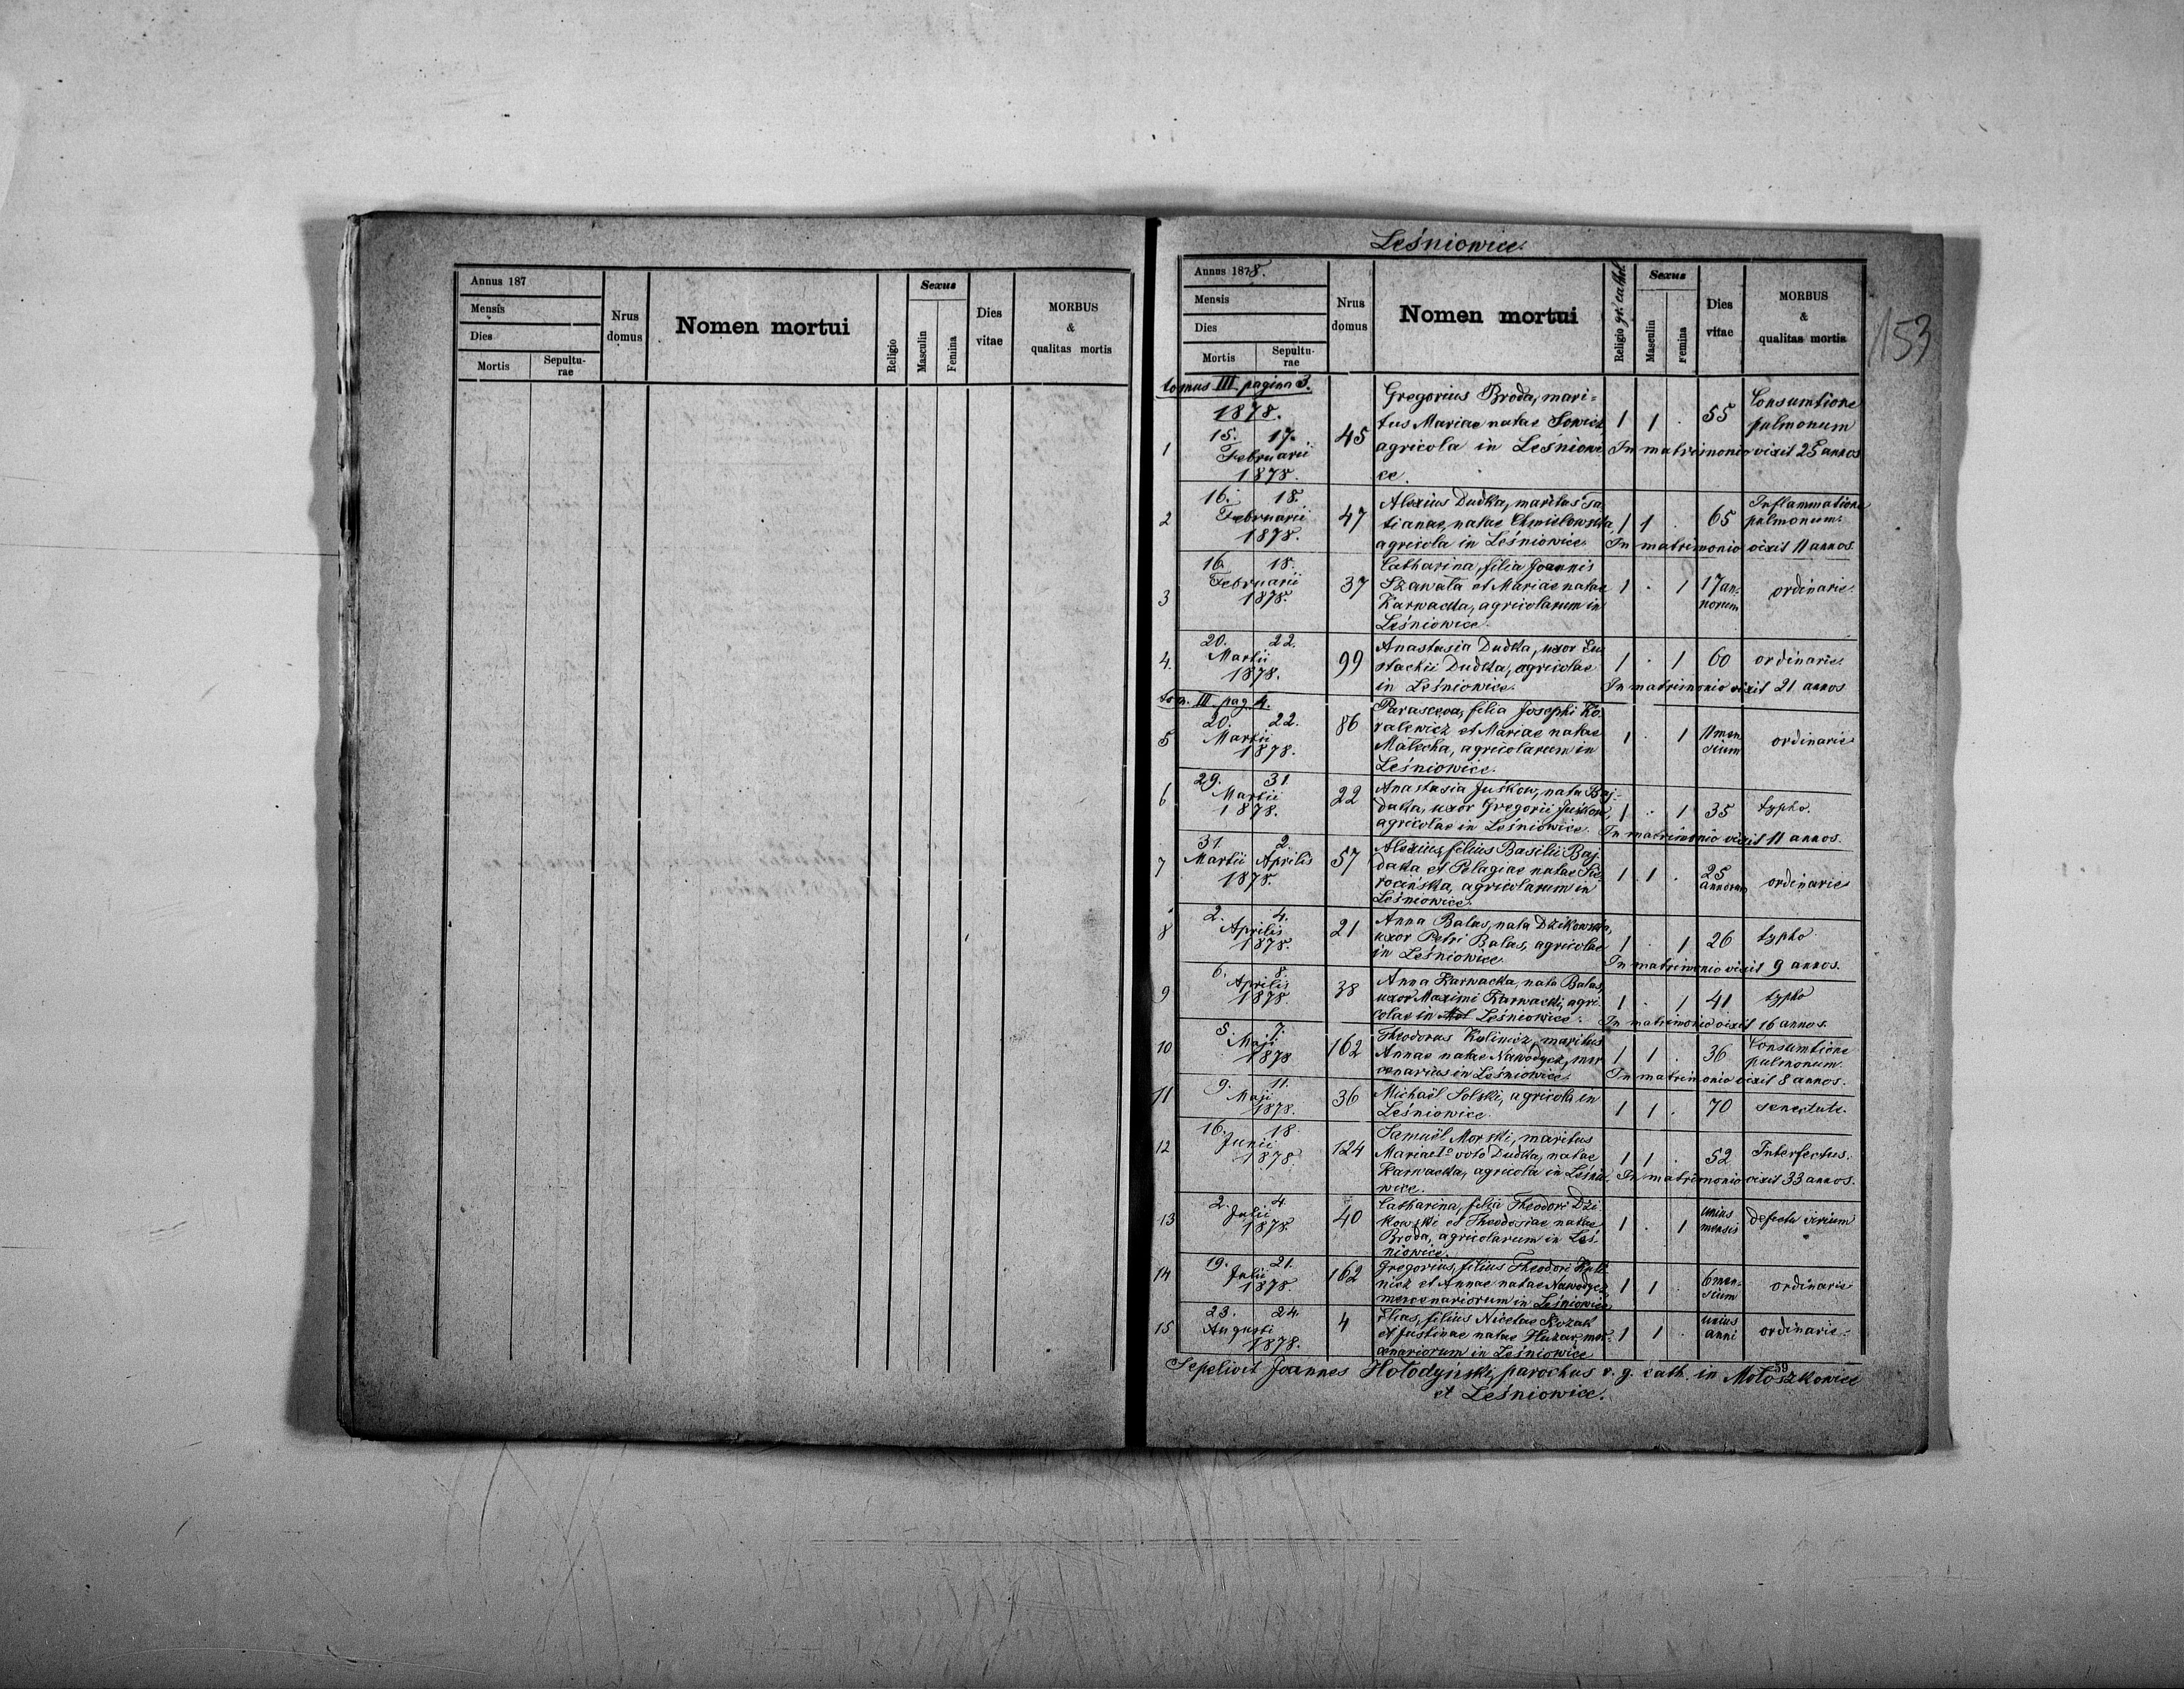 Annus 187
Mensis
Dies
Mortis
Sepultu-
rae
Nrus
domus
Nomen mortui
Religio
Sexus
Masculin
Femina
Dies
vitae
MORBUS
&
qualitas mortis
Leśniowice.
153
Annus 1878.
Mensis
Dies
Mortis
Sepultu-
rae
Nrus
domus
Nomen mortui
Religio gr. cathol.
Sexus
Masculin
Femina
Dies
vitae
MORBUS
&
qualitas mortis
tomus III pagina 3.
1878.
1 15. 17. Februarii 1878. 45
Gregorius Broda, mari-
tus Mariae natae
agricola in Leśniowi
ce.
1 1 . 55 Consumtione
pulmonum
In matrimonio vixit 25 annos
2 16. 18. Februarii 1878. 47
Alexius Dudka, maritus Ta
tianae, natae Chmielowska,
agricola in Leśniowice.
1 1 . 65 Inflammatione
pulmonum.
In matrimonio vixit 11 annos.
3 16. 18. Februarii 1878. 37
Catharina, filia Joannis
Szawała et Mariae natae
Karwacka, agricolarum in
Leśniowice.
1 . 1 17 an-
norum
ordinarie.
4. 20. 22. Martii 1878. 99
Anastasia Dudka, uxor Eu
stachii Dudka, agricolae
in Leśniowice.
1 . 1 60 ordinarie.
In matrimonio vixit 21 annos
tom. III pag. 4.
5 20. 22. Martii 1878. 86
Parasceva, filia Josephi Ko
walewicz et Mariae natae
Małecha, agricolarum in
Leśniowice.
1 . 1 11 men
sium
ordinarie
6 29. 31. Martii 1878. 22
Anastasia Juśkow, nata Baj-
daka, uxor Gregorii Juśkow,
agricolae in Leśniowice.
1 . 1 35 typho.
In matrimonio vixit 11 annos.
7 31. Martii 2. Aprilis 1878. 57
Alexius, filius Basilii Baj
daka et Pelagiae natae
agricolarum in
Leśniowice.
1 1 . 25
annorum
ordinarie
8 2. 4. Aprilis 1878. 21
Anna Balas, nata Dzikowska,
uxor Petri Balas, agricolae
in Leśniowice.
1 . 1 26 typho
In matrimonio vixit 9 annos.
9 6. 8. Aprilis 1878 38
Anna Karwacka, nata Balas,
uxor Maximi Karwacki, agri
colae in Leśniowice.
1 . 1 41 typho
In matrimonio vixit 16 annos.
10 5. 7. Maji 1878 162
Theodorus Kulinicz, maritus
Annae natae Nawodycz, mer
cenarius in Leśniowice.
1 1 . 36 Consumtione
pulmonum.
In matrimonio vixit 8 annos.
11 9. 11. Maji 1878. 36
Michaël Solski, agricola in
Leśniowice.
1 1 . 70 senectute.
12 16. 18. Junii 1878. 124
Samuël Morski, maritus
Mariae 1º voto Dudka, natae
Karwacka, agricola in Leśnio
wice.
1 1 . 52 Interfectus.
In matrimonio vixit 33 annos.
13 2. 4. Julii 1878. 40
Catharina, filia Theodori Dzi
kowski et Theodosiae natae
Broda, agricolarum in Leś-
niowice.
1 . 1 unius
mensis
defectu virium
14 19. 21. Julii 1878. 162
Gregorius, filius Theodori Kuli
nicz et Annae natae Nawodycz,
mercenariorum in Leśniowice
1 1 . 6 men-
sium
ordinarie
15 23. 24. Augusti 1878. 4
Elias, filius Nicetae Kozak
et Justinae natae Huzar, mer-
cenariorum in Leśniowice
1 1 . unius
anni
ordinarie.
59
Sepelivit Joannes Hołodyński, parochus r. g. cath. in Mołoszkowice
et Leśniowice.